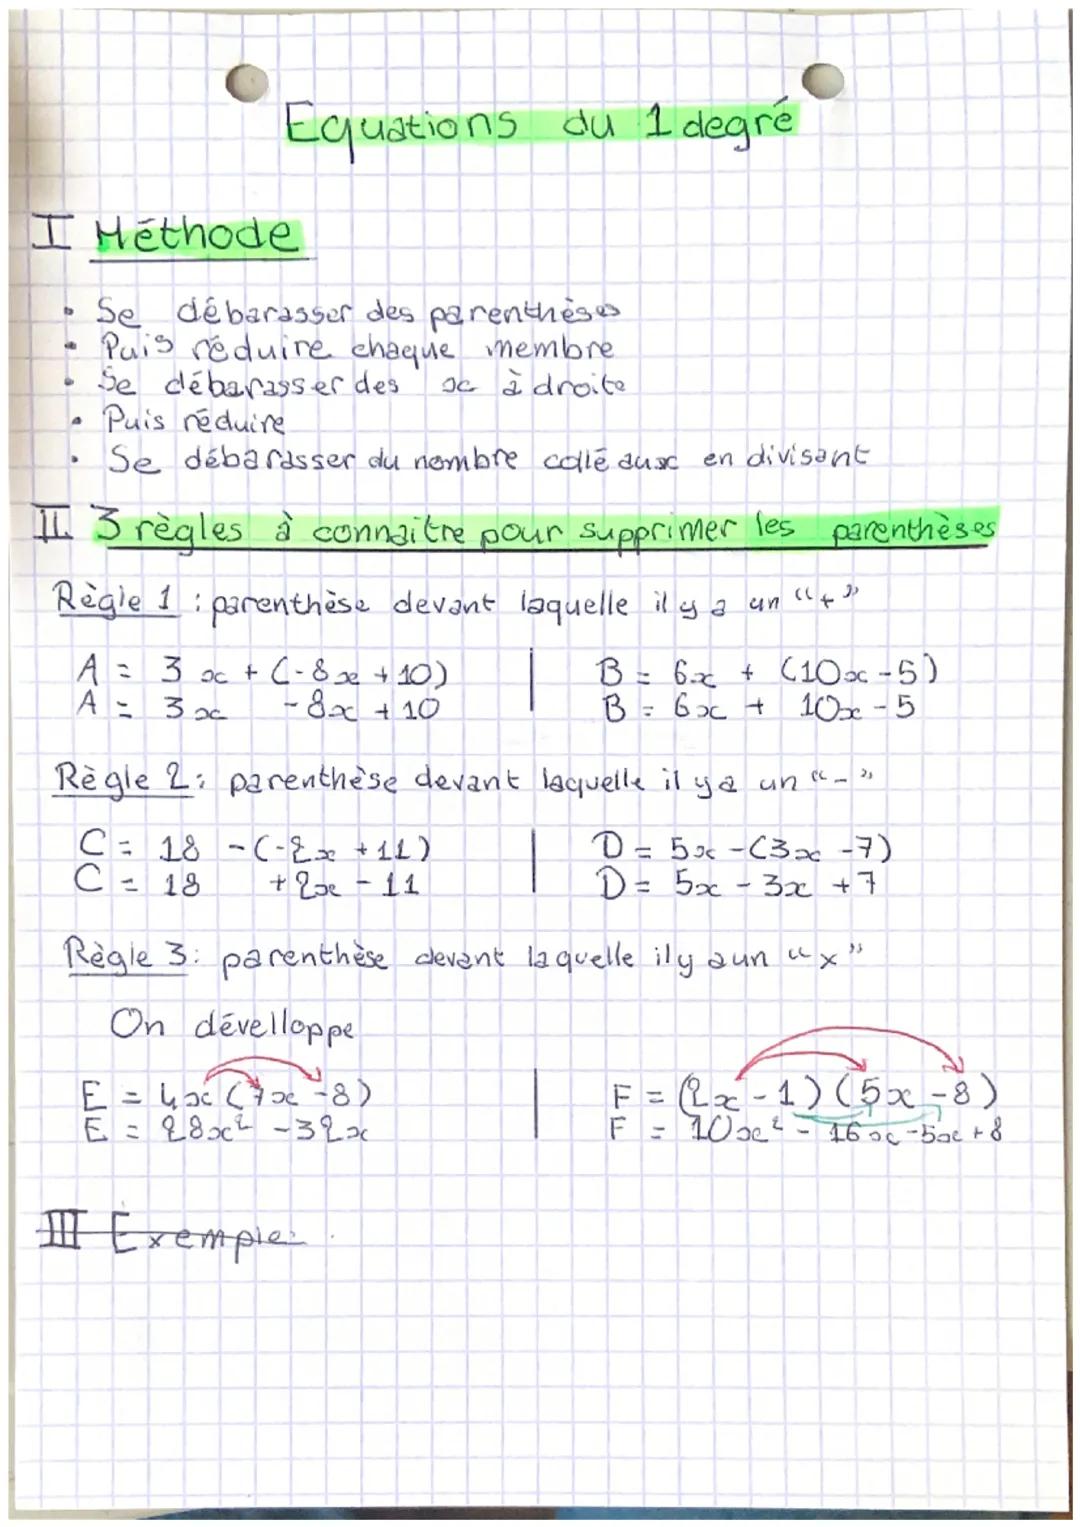 Equations du 1 degré
I Méthode
• Se débarasser des parenthèses
• Puis réduire chaque membre
• Se débarasser des x à droite
• Puis réduire
• Se débarasser du nombre collé aux en divisant
II. 3 règles à connaitre pour supprimer les parenthèses
Règle 1 : parenthèse devant laquelle il y a un "+"
A = 3x + (-8x + 10) | B = 6x + (10x - 5)
A = 3x - 8x + 10 | B = 6x + 10x - 5
Règle 2 : parenthèse devant laquelle il y a un "-"
C = 18 - (-2x + 11) | D = 5x - (3x - 7)
C = 18 + 2x - 11 | D = 5x - 3x + 7
Règle 3 : parenthèse devant laquelle il y a un "x"
On dévelloppe
E = 4x (7x - 8) | F = (2x - 1) (5x - 8)
E = 28x² - 32x | F = 10x² - 16x - 5x + 8
III Exemple: